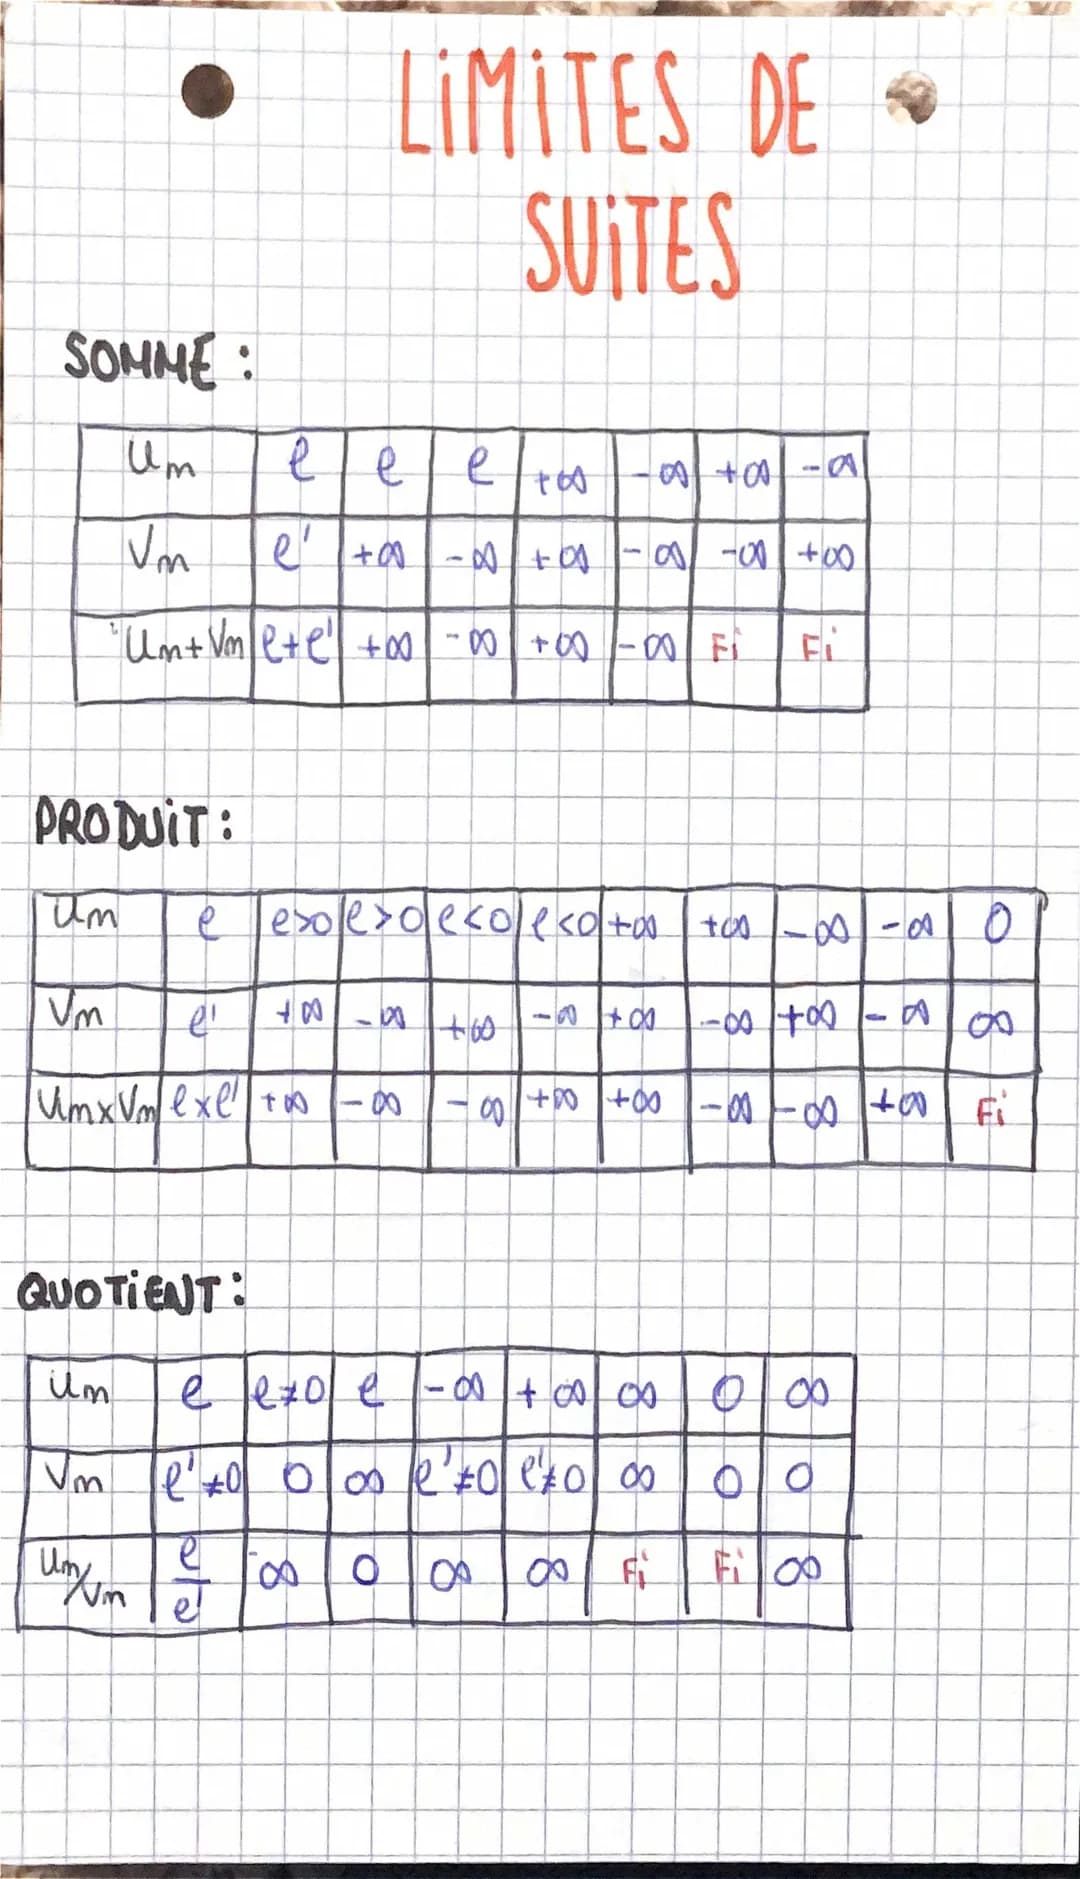 LiMiTES DE
SUiTES
SOMME :
Un ℓ ℓ ℓ +∞ -∞ +∞ -∞
Vn ℓ' +∞ -∞ +∞ -∞ -∞ +∞
Un+Vn ℓ+ℓ' +∞ -∞ +∞ -∞ Fi Fi
PRODUiT :
Un ℓ ℓ>0 ℓ>0 ℓ<0 ℓ<0 +∞ +∞ -∞ -∞ 0
Vn ℓ' +∞ -∞ +∞ -∞ +∞ -∞ +∞ -∞ ∞
Un×Vn ℓ×ℓ' +∞ -∞ -∞ +∞ +∞ -∞ -∞ +∞ Fi
QUOTiENT :
Un ℓ ℓ≠0 ℓ -∞ +∞ ∞ 0 ∞
Vn ℓ'≠0 0 ∞ ℓ'≠0 ℓ'≠0 ∞ 0 0
Un/Vn ℓ/ℓ' ∞ 0 ∞ ∞ Fi Fi ∞